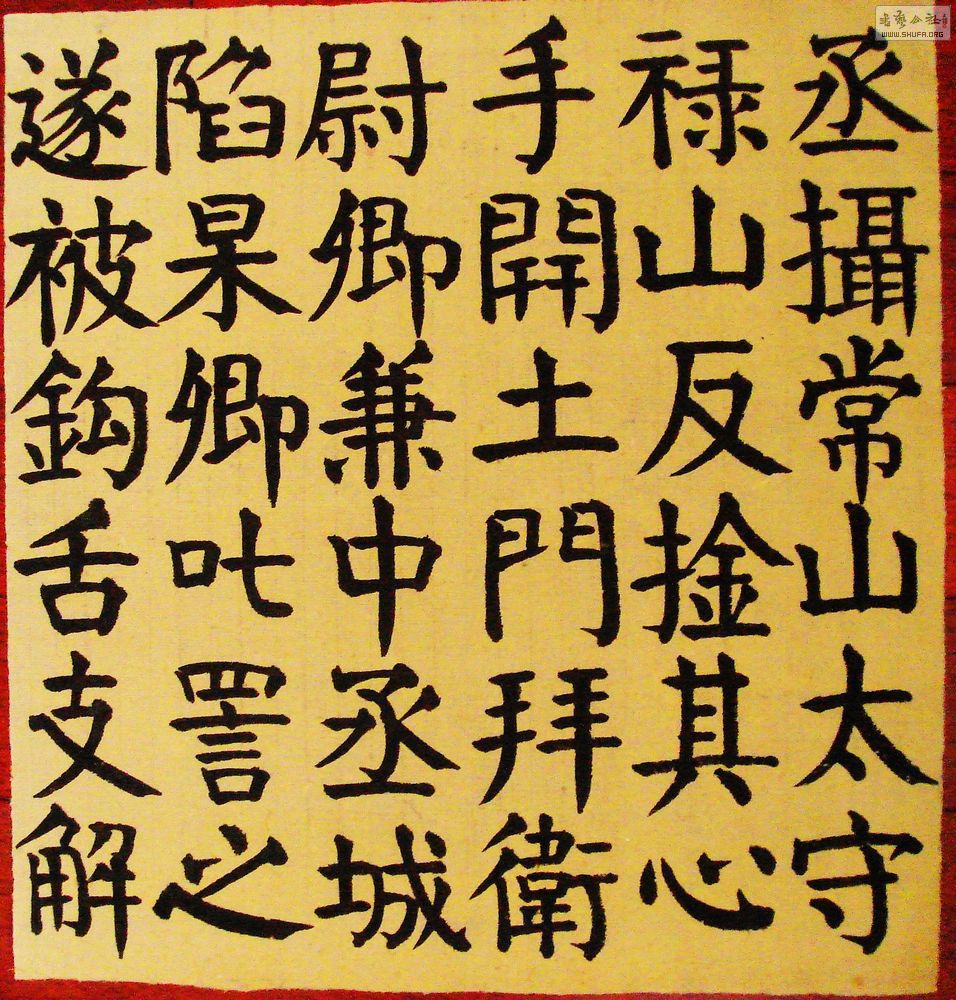 丞攝常山太守
禄山反捦其心
手開土門拜衛
尉卿兼中丞城
陷杲卿叱詈之
遂被鈎舌支解
WWW.SHUFA.ORG